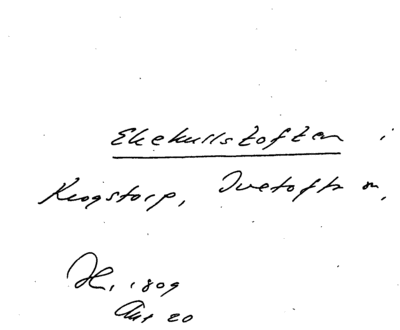 Ekekullstoften i
Krogstorp, Ivetofta sn,
Hl, 1809
Aug 20